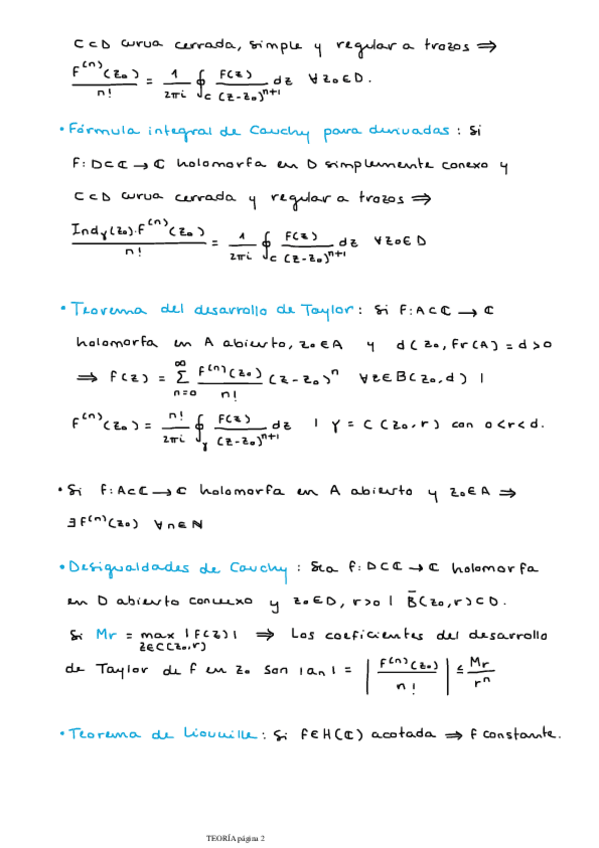 C ⊂ D curva cerrada, simple y regular a trozos ⇒
F⁽ⁿ⁾(z₀)/n! = 1/2πi ∮_C F(z)/(z-z₀)ⁿ⁺¹ dz ∀z₀∈D.
• Fórmula integral de Cauchy para derivadas: Si
F: D⊂ℂ → ℂ holomorfa en D simplemente conexo y
C ⊂ D curva cerrada y regular a trozos ⇒
Ind_γ(z₀)·F⁽ⁿ⁾(z₀)/n! = 1/2πi ∮_C F(z)/(z-z₀)ⁿ⁺¹ dz ∀z₀∈D
• Teorema del desarollo de Taylor: Si F: A⊂ℂ → ℂ
holomorfa en A abierto, z₀∈A y d(z₀, Fr(A) = d > 0
⇒ F(z) = ∑_{n=0}^∞ F⁽ⁿ⁾(z₀)/n! (z-z₀)ⁿ ∀z∈B(z₀,d) |
F⁽ⁿ⁾(z₀) = n!/2πi ∮_γ F(z)/(z-z₀)ⁿ⁺¹ dz | γ = C(z₀,r) con 0<r<d.
• Si f: A⊂ℂ → ℂ holomorfa en A abierto y z₀∈A ⇒
∃F⁽ⁿ⁾(z₀) ∀n∈ℕ
• Desigualdades de Cauchy: Sea f: D⊂ℂ → ℂ holomorfa
en D abierto conexo y z₀∈D, r>0 | B̄(z₀,r)⊂D.
Si Mr = max_{z∈C(z₀,r)} |F(z)| ⇒ Los coeficientes del desarrollo
de Taylor de F en z₀ son |an| = |F⁽ⁿ⁾(z₀)/n!| ≤ Mr/rⁿ
• Teorema de Liouville: Si f∈H(ℂ) acotada ⇒ F constante.
TEORÍA página 2